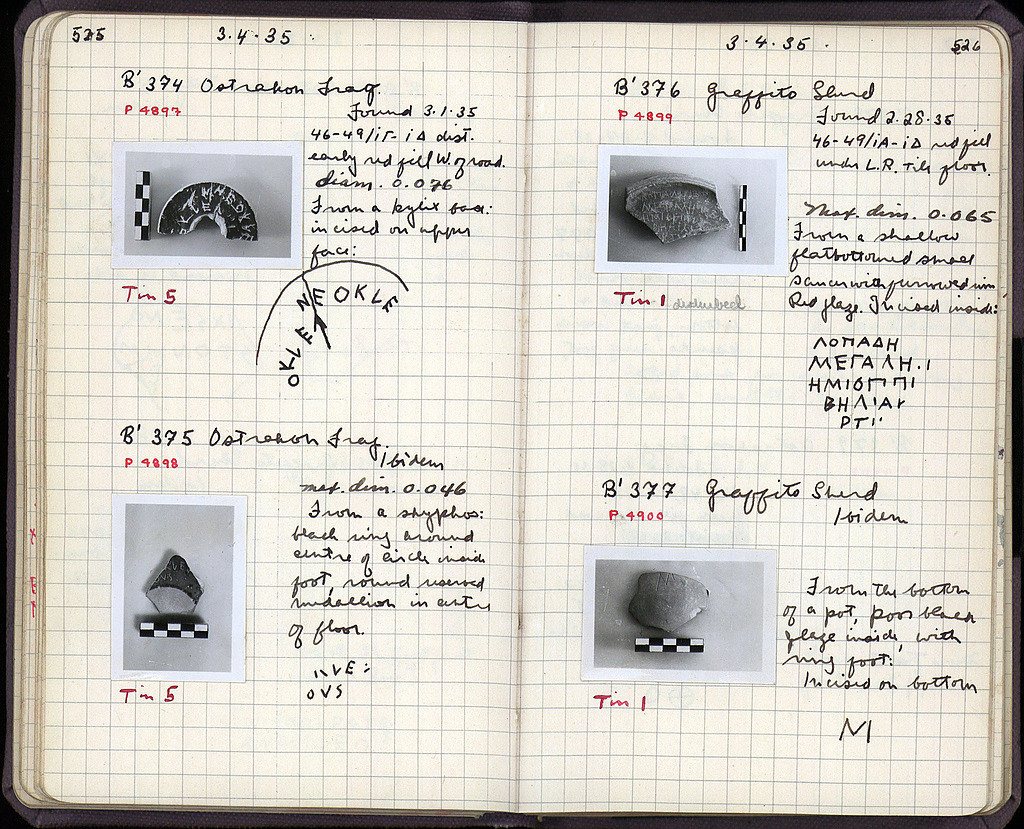 525
3.4.35
B' 374 Ostrakon Frag.
P 4897
Found 3.1.35
46-49/ΙΓ-ΙΔ dist.
early red fill W. of road.
diam. 0.076
From a kylix base:
incised on upper
face:
OKLEΣ NEOKLE
Tin 5
B' 375 Ostrakon Frag.
P 4898
Ibidem
max. dim. 0.046
From a skyphos:
black ring around
centre of circle inside
foot, round reserved
medallion in centre
of floor.
ΛVE:
OVS
Tin 5
3.4.35.
526
B' 376 Graffito Sherd
P 4899
Found 2.28.35
46-49/ΙΑ-ΙΔ red fill
under L.R. tile floor.
Max. dim. 0.065
From a shallow
flatbottomed small
saucer with furrowed rim,
Red glaze. Incised inside:
Tin 1
ΛΟΠΑΔΗ
ΜΕΓΑΛΗ.Ι
ΗΜΙΟΠΠΙ
ΒΗΛΙΑΥ
ΡΤΙ
B' 377 Graffito Sherd
P 4900
Ibidem
From the bottom
of a pot, poor black
glaze inside, with
ring foot.
Incised on bottom
Tin 1